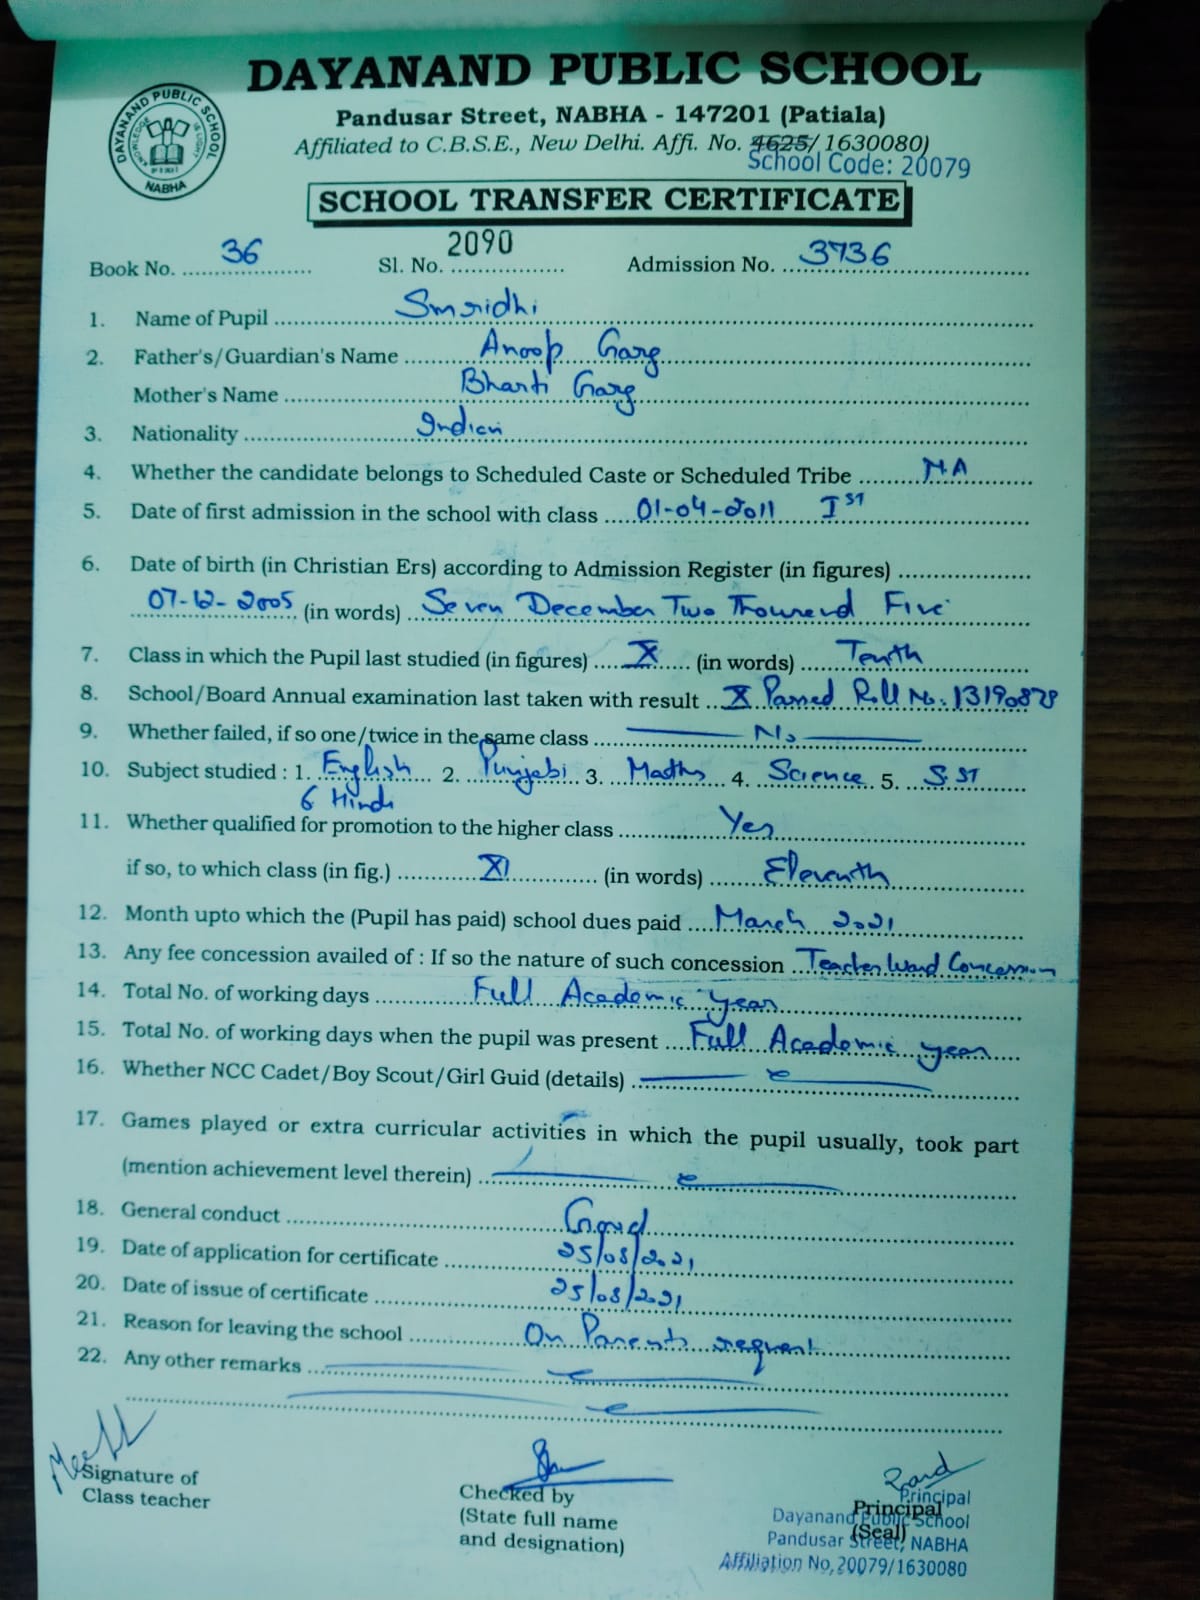 DAYANAND PUBLIC SCHOOL
DAYANAND PUBLIC SCHOOL
NABHA
Pandusar Street, NABHA - 147201 (Patiala)
Affiliated to C.B.S.E., New Delhi. Affi. No. 4625/ 1630080)
School Code: 20079
SCHOOL TRANSFER CERTIFICATE
Book No. 36 Sl. No. 2090 Admission No. 3736
1. Name of Pupil Smridhi
2. Father's/Guardian's Name Anoop Garg
Mother's Name Bharti Garg
3. Nationality Indian
4. Whether the candidate belongs to Scheduled Caste or Scheduled Tribe N.A
5. Date of first admission in the school with class 01-04-2011 I ST
6. Date of birth (in Christian Ers) according to Admission Register (in figures)
07-12-2005 (in words) Seven December Two Thousand Five
7. Class in which the Pupil last studied (in figures) X (in words) Tenth
8. School/Board Annual examination last taken with result X Passed Roll No. 13190878
9. Whether failed, if so one/twice in the same class No
10. Subject studied : 1. English 2. Punjabi 3. Maths 4. Science 5. S.ST
6 Hindi
11. Whether qualified for promotion to the higher class Yes
if so, to which class (in fig.) XI (in words) Eleventh
12. Month upto which the (Pupil has paid) school dues paid March 2021
13. Any fee concession availed of : If so the nature of such concession Teacher Ward Concession
14. Total No. of working days Full Academic year
15. Total No. of working days when the pupil was present Full Academic year
16. Whether NCC Cadet/Boy Scout/Girl Guid (details)
17. Games played or extra curricular activities in which the pupil usually, took part
(mention achievement level therein)
18. General conduct Good
19. Date of application for certificate 25/08/2021
20. Date of issue of certificate 25/08/2021
21. Reason for leaving the school On Parents request
22. Any other remarks
Signature of
Class teacher
Checked by
(State full name
and designation)
Principal
Principal
(Seal)
Dayanand Public School
Pandusar Street, NABHA
Affiliation No, 20079/1630080